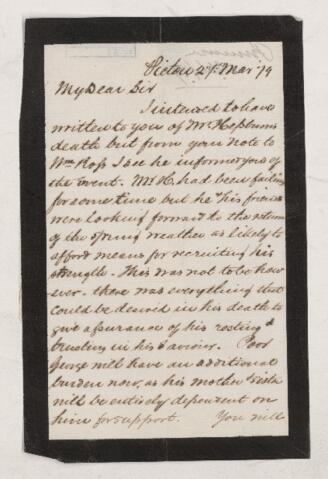 Pictou 27 Mar 79
My Dear Sir
I intended to have
written to you of Mr Hepburn's
death but from your note to
Wm Ross I see he informed you of
the event. Mr H. had been failing
for some time but he & his friends
were looking forward to the return
of the Spring weather as likely to
afford means for recruiting his
strength. This was not to be how
ever. there was everything that
could be desired in his death to
give assurance of his resting &
trusting in his Saviour. Poor
George will have an additional
burden now, as his mother & sister
will be entirely dependent on
him for support. You will